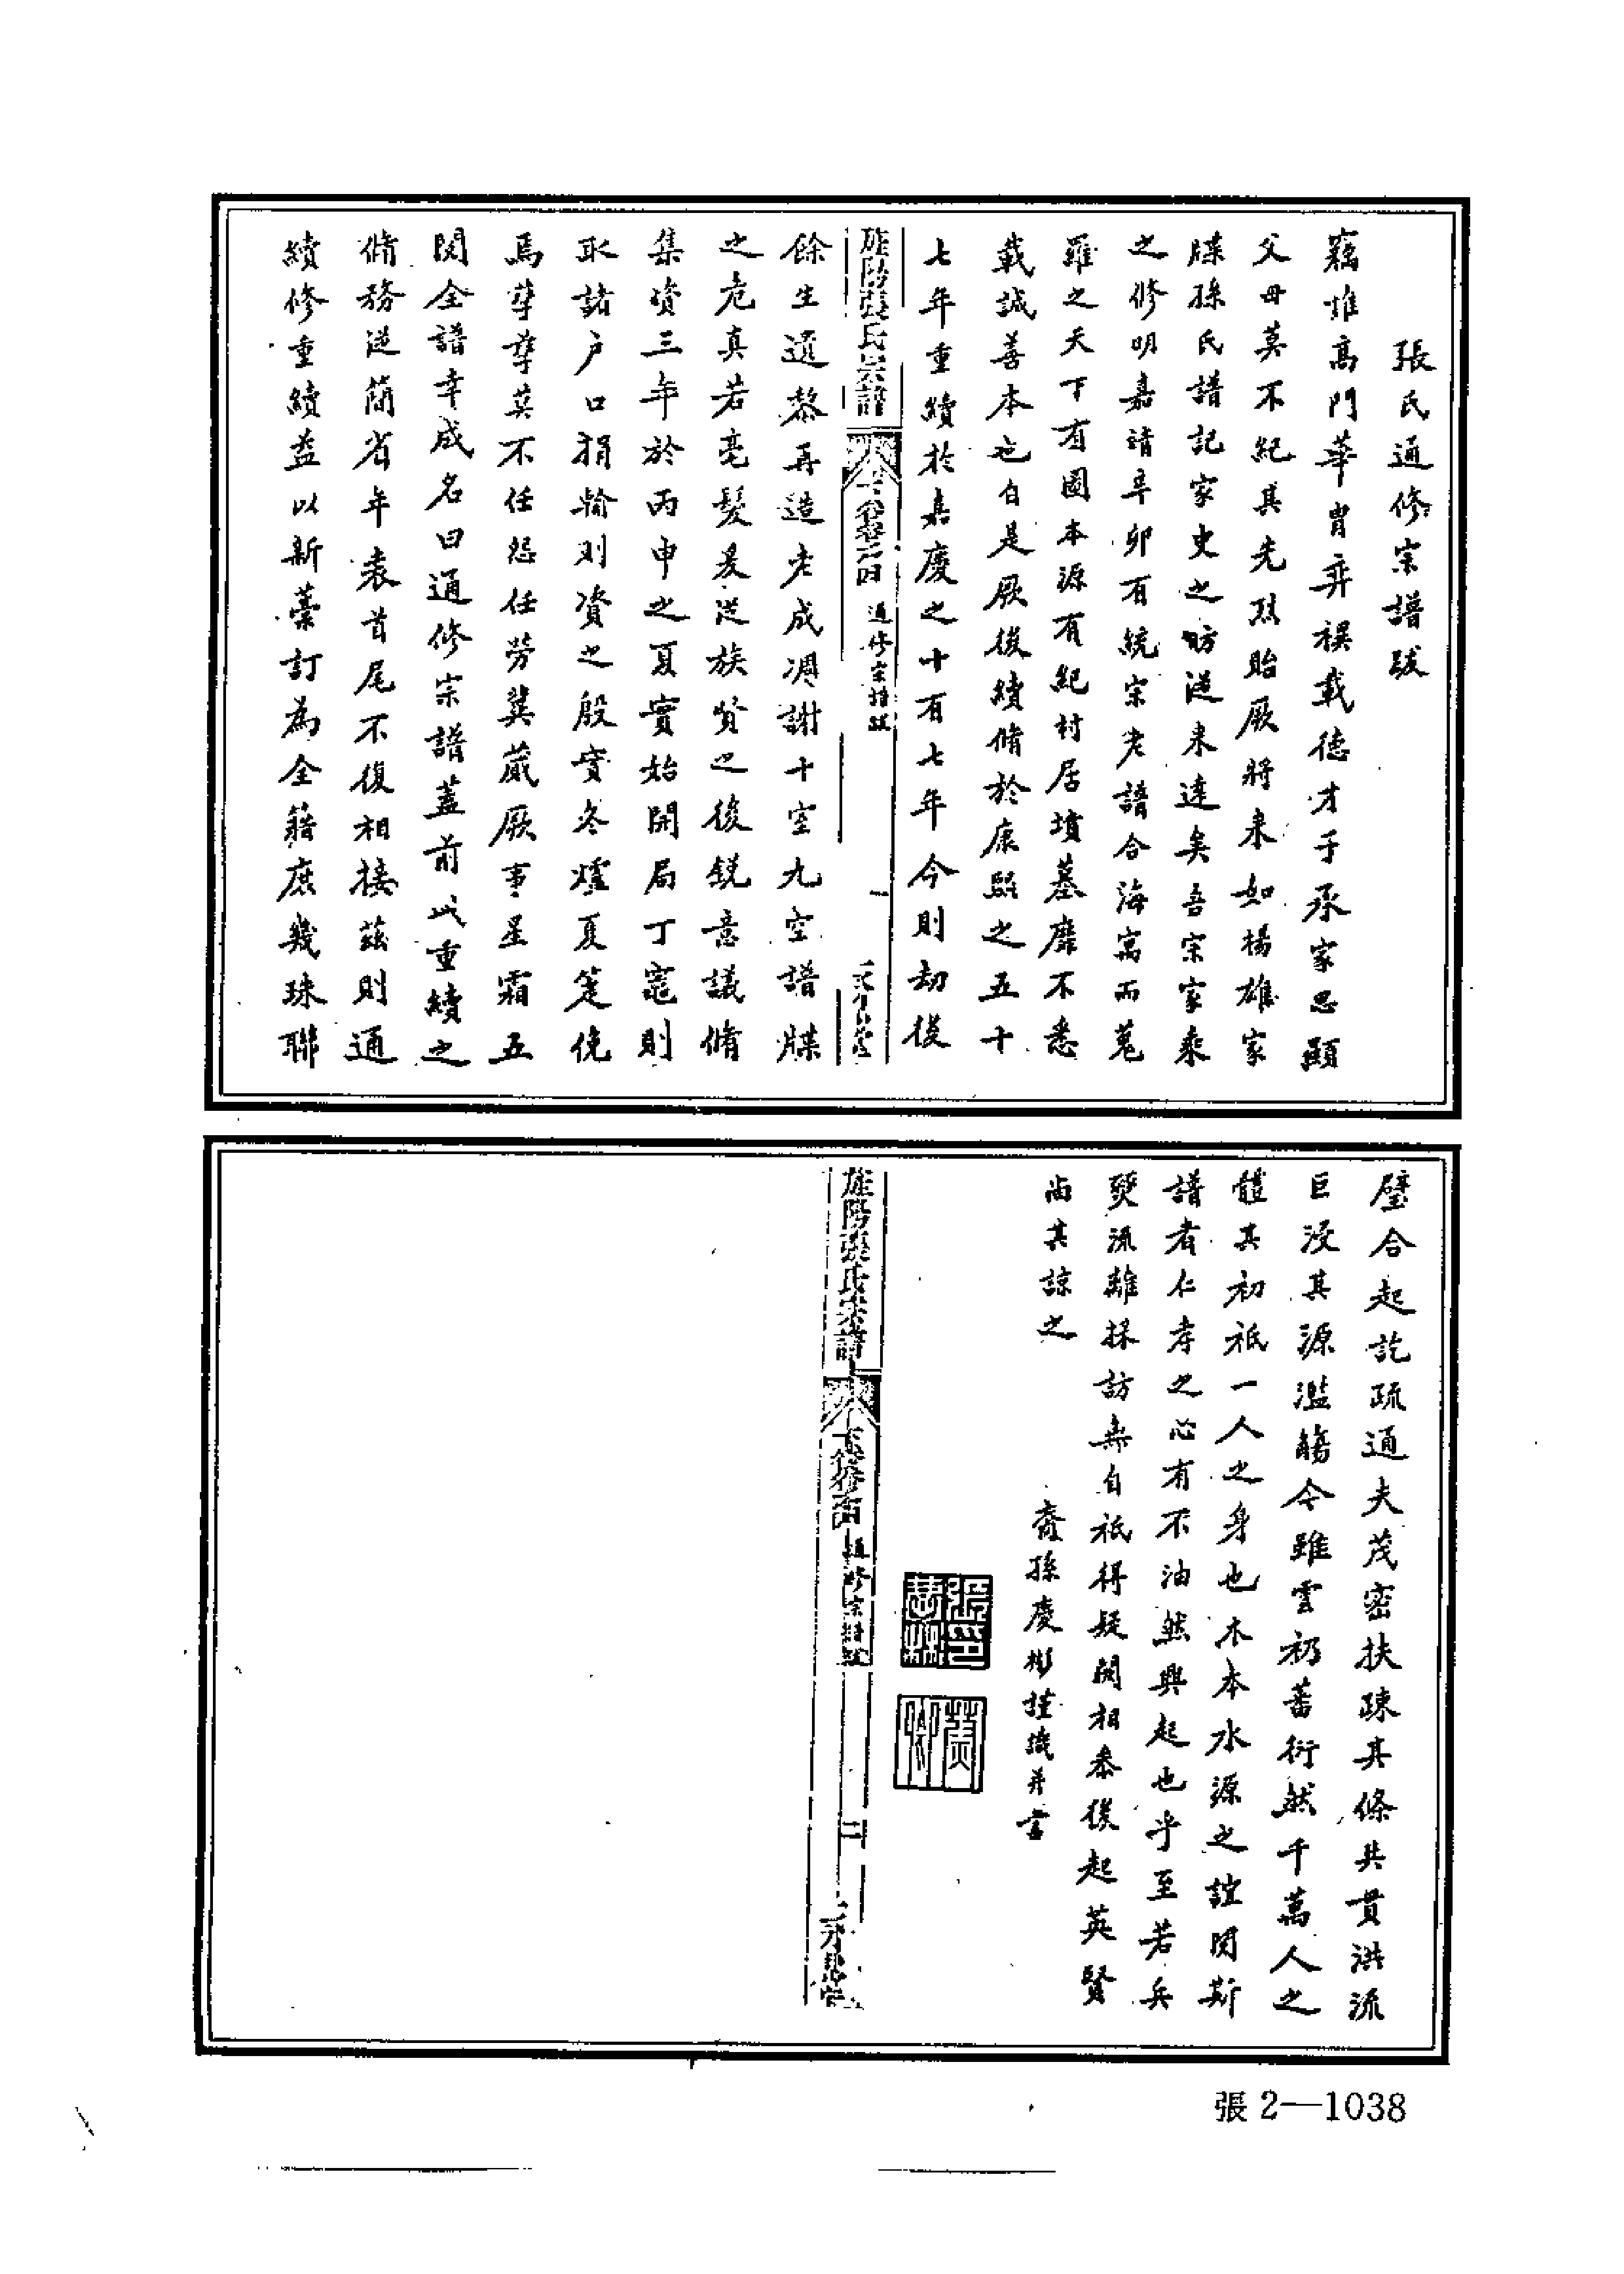 張氏通修宗譜跋
竊惟高門華胄弈禩載德才子承家思顯
父母莫不紀其先烈貽厥將來如楊雄家
牒孫氏譜記家史之昉從來遠矣吾宗家乘
之修明嘉靖辛卯有統宗老譜合海寓而蒐
羅之天下有圖本源有紀村居墳墓靡不悉
載誠善本也自是厥後續脩於康熙之五十
七年重續於嘉慶之十有七年今則劫後
旌陽張氏宗譜 卷之四 通修宗譜跋 一
餘生遺黎再造老成凋謝十室九空譜牒
之危真若毫髮爰從族賢之後銳意議脩
集資三年於丙申之夏實始開局丁竈則
取諸戶口捐輸則資之殷實冬爐夏箑俛
焉孳孳莫不任怨任勞冀蕆厥事星霜五
閱全譜幸成名曰通修宗譜蓋前此重續之
脩務從簡省年表首尾不復相接茲則通
續修重續益以新藁訂為全籍庶幾珠聯
璧合起訖疏通夫茂密扶疎其條共貫洪流
巨浸其源濫觴今雖雲礽蕃衍然千萬人之
體其初祇一人之身也木本水源之誼閱斯
譜者仁孝之心有不油然興起也乎至若兵
燹流離採訪無自祇得疑闕相參後起英賢
尚其諒之
裔孫慶彬謹識并書
旌陽張氏宗譜 通修宗譜跋 二
張2—1038